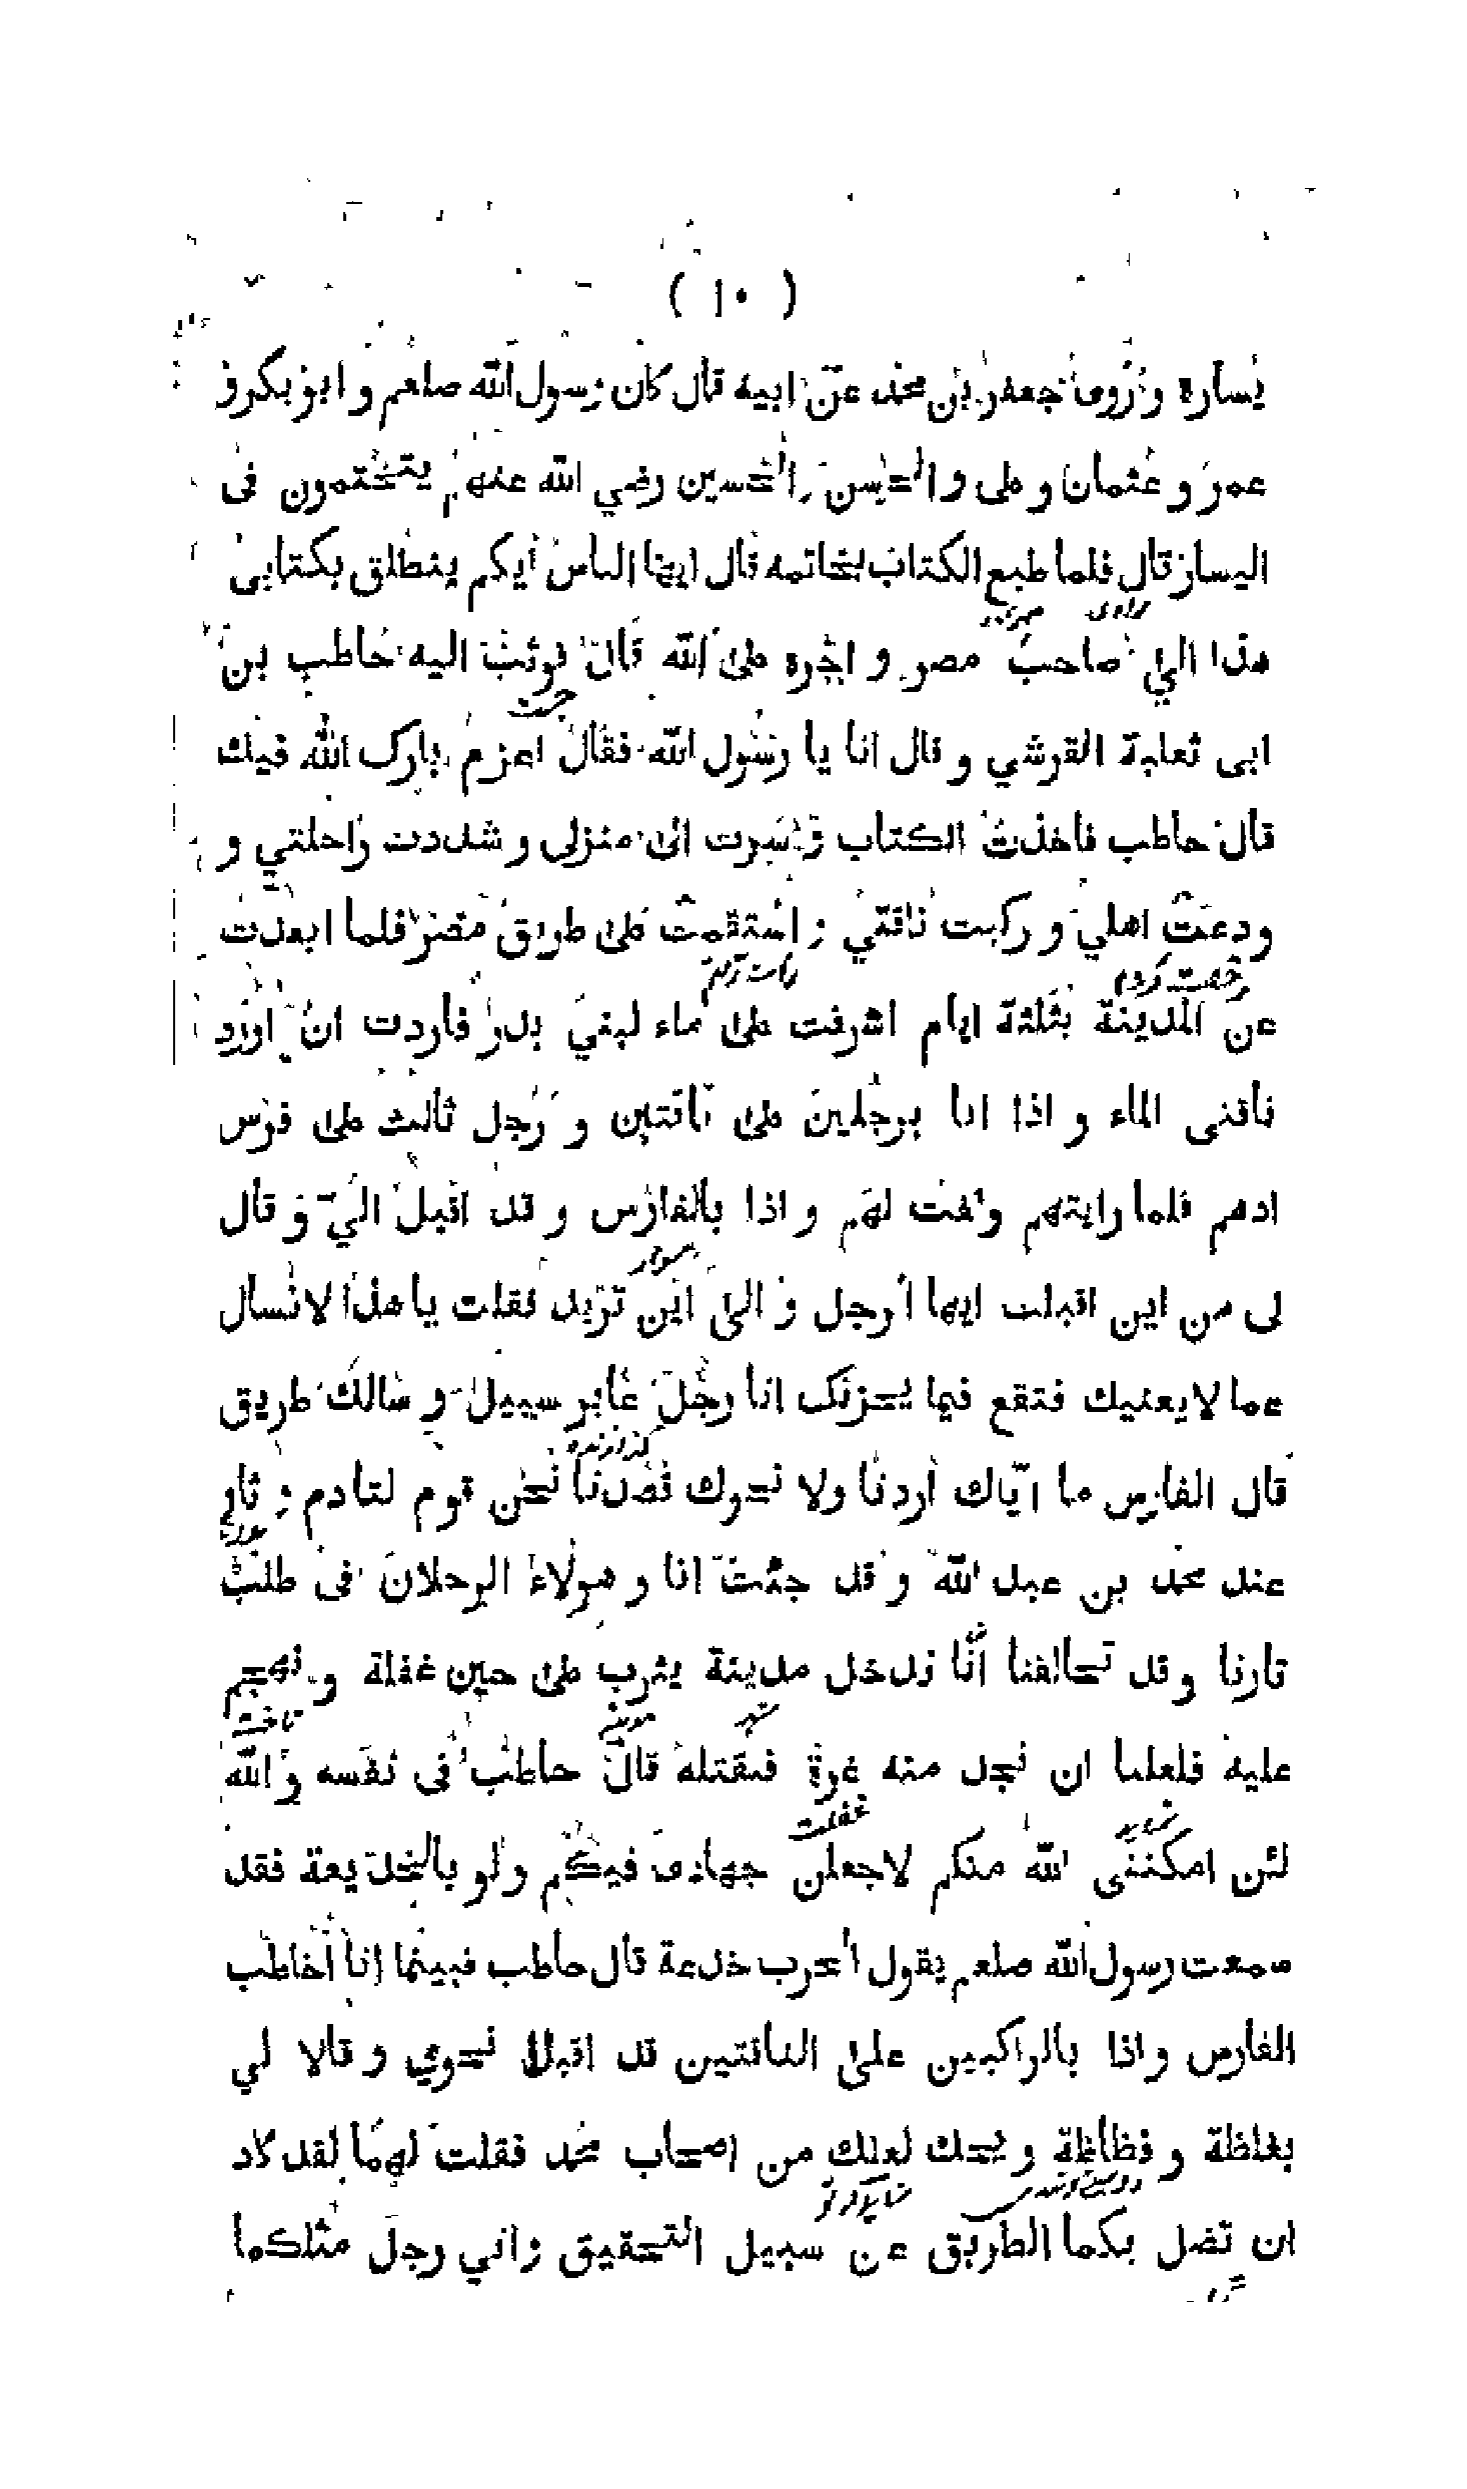 ( ١٠ )
يساره وروى جعفر بن محمد عن ابيه قال كان رسول الله صلعم و ابو بكر و
عمر و عثمان و على و الحسن و الحسين رضي الله عنهم يتختمون فى
اليسار قال فلما طبع الكتاب بخاتمه قال ايها الناس أيكم ينطلق بكتابى
هذا الى صاحب مصر و اجره على الله قال فوثب اليه حاطب بن
ابى ثعلبة القرشي و قال انا يا رسول الله فقال اعزم بارك الله فيك
قال حاطب فاخذت الكتاب و سرت الى منزلى و شددت راحلتي و
ودعت اهلي و ركبت ناقتي و استقمت على طريق مصر فلما ابعدت
رخصت كردم
عن المدينة بثلثة ايام اشرفت على ماء لبني بدر فاردت ان اورد
ناقتى الماء و اذا انا برجلين على ناقتين و رجل ثالث على فرس
ادهم فلما رايتهم وقفت لهم و اذا بالفارس و قد اقبل الي و قال
سوار
لى من اين اقبلت ايها الرجل و الى اين تريد فقلت يا هذا لا تسال
عما لا يعنيك فتقع فيما يحزنك انا رجل عابر سبيل و سالك طريق
قال الفارس ما اياك أردنا ولا نحوك قصدنا نحن قوم لنا دم و ثار
عند محمد بن عبد الله و قد جئت انا و هولاء الرجلان فى طلب
ثارنا و قد تحالفنا أنا ندخل مدينة يثرب على حين غفلة و نهجم
عليه فلعلنا ان نجد منه غرة فنقتله قال حاطب فى نفسه و الله
غفلت
شايد
لئن امكننى الله منكم لاجعلن جهادى فيكم ولو بالخديعة فقد
سمعت رسول الله صلعم يقول الحرب خدعة قال حاطب فبينما انا أخاطب
الفارس و اذا بالراكبين على الناقتين قد اقبلا نحوي و قالا لي
بغلظة و فظاظة ويحك لعلك من اصحاب محمد فقلت لهما لقد كاد
ان تضل بكما الطريق عن سبيل التحقيق و اني رجل مثلكما